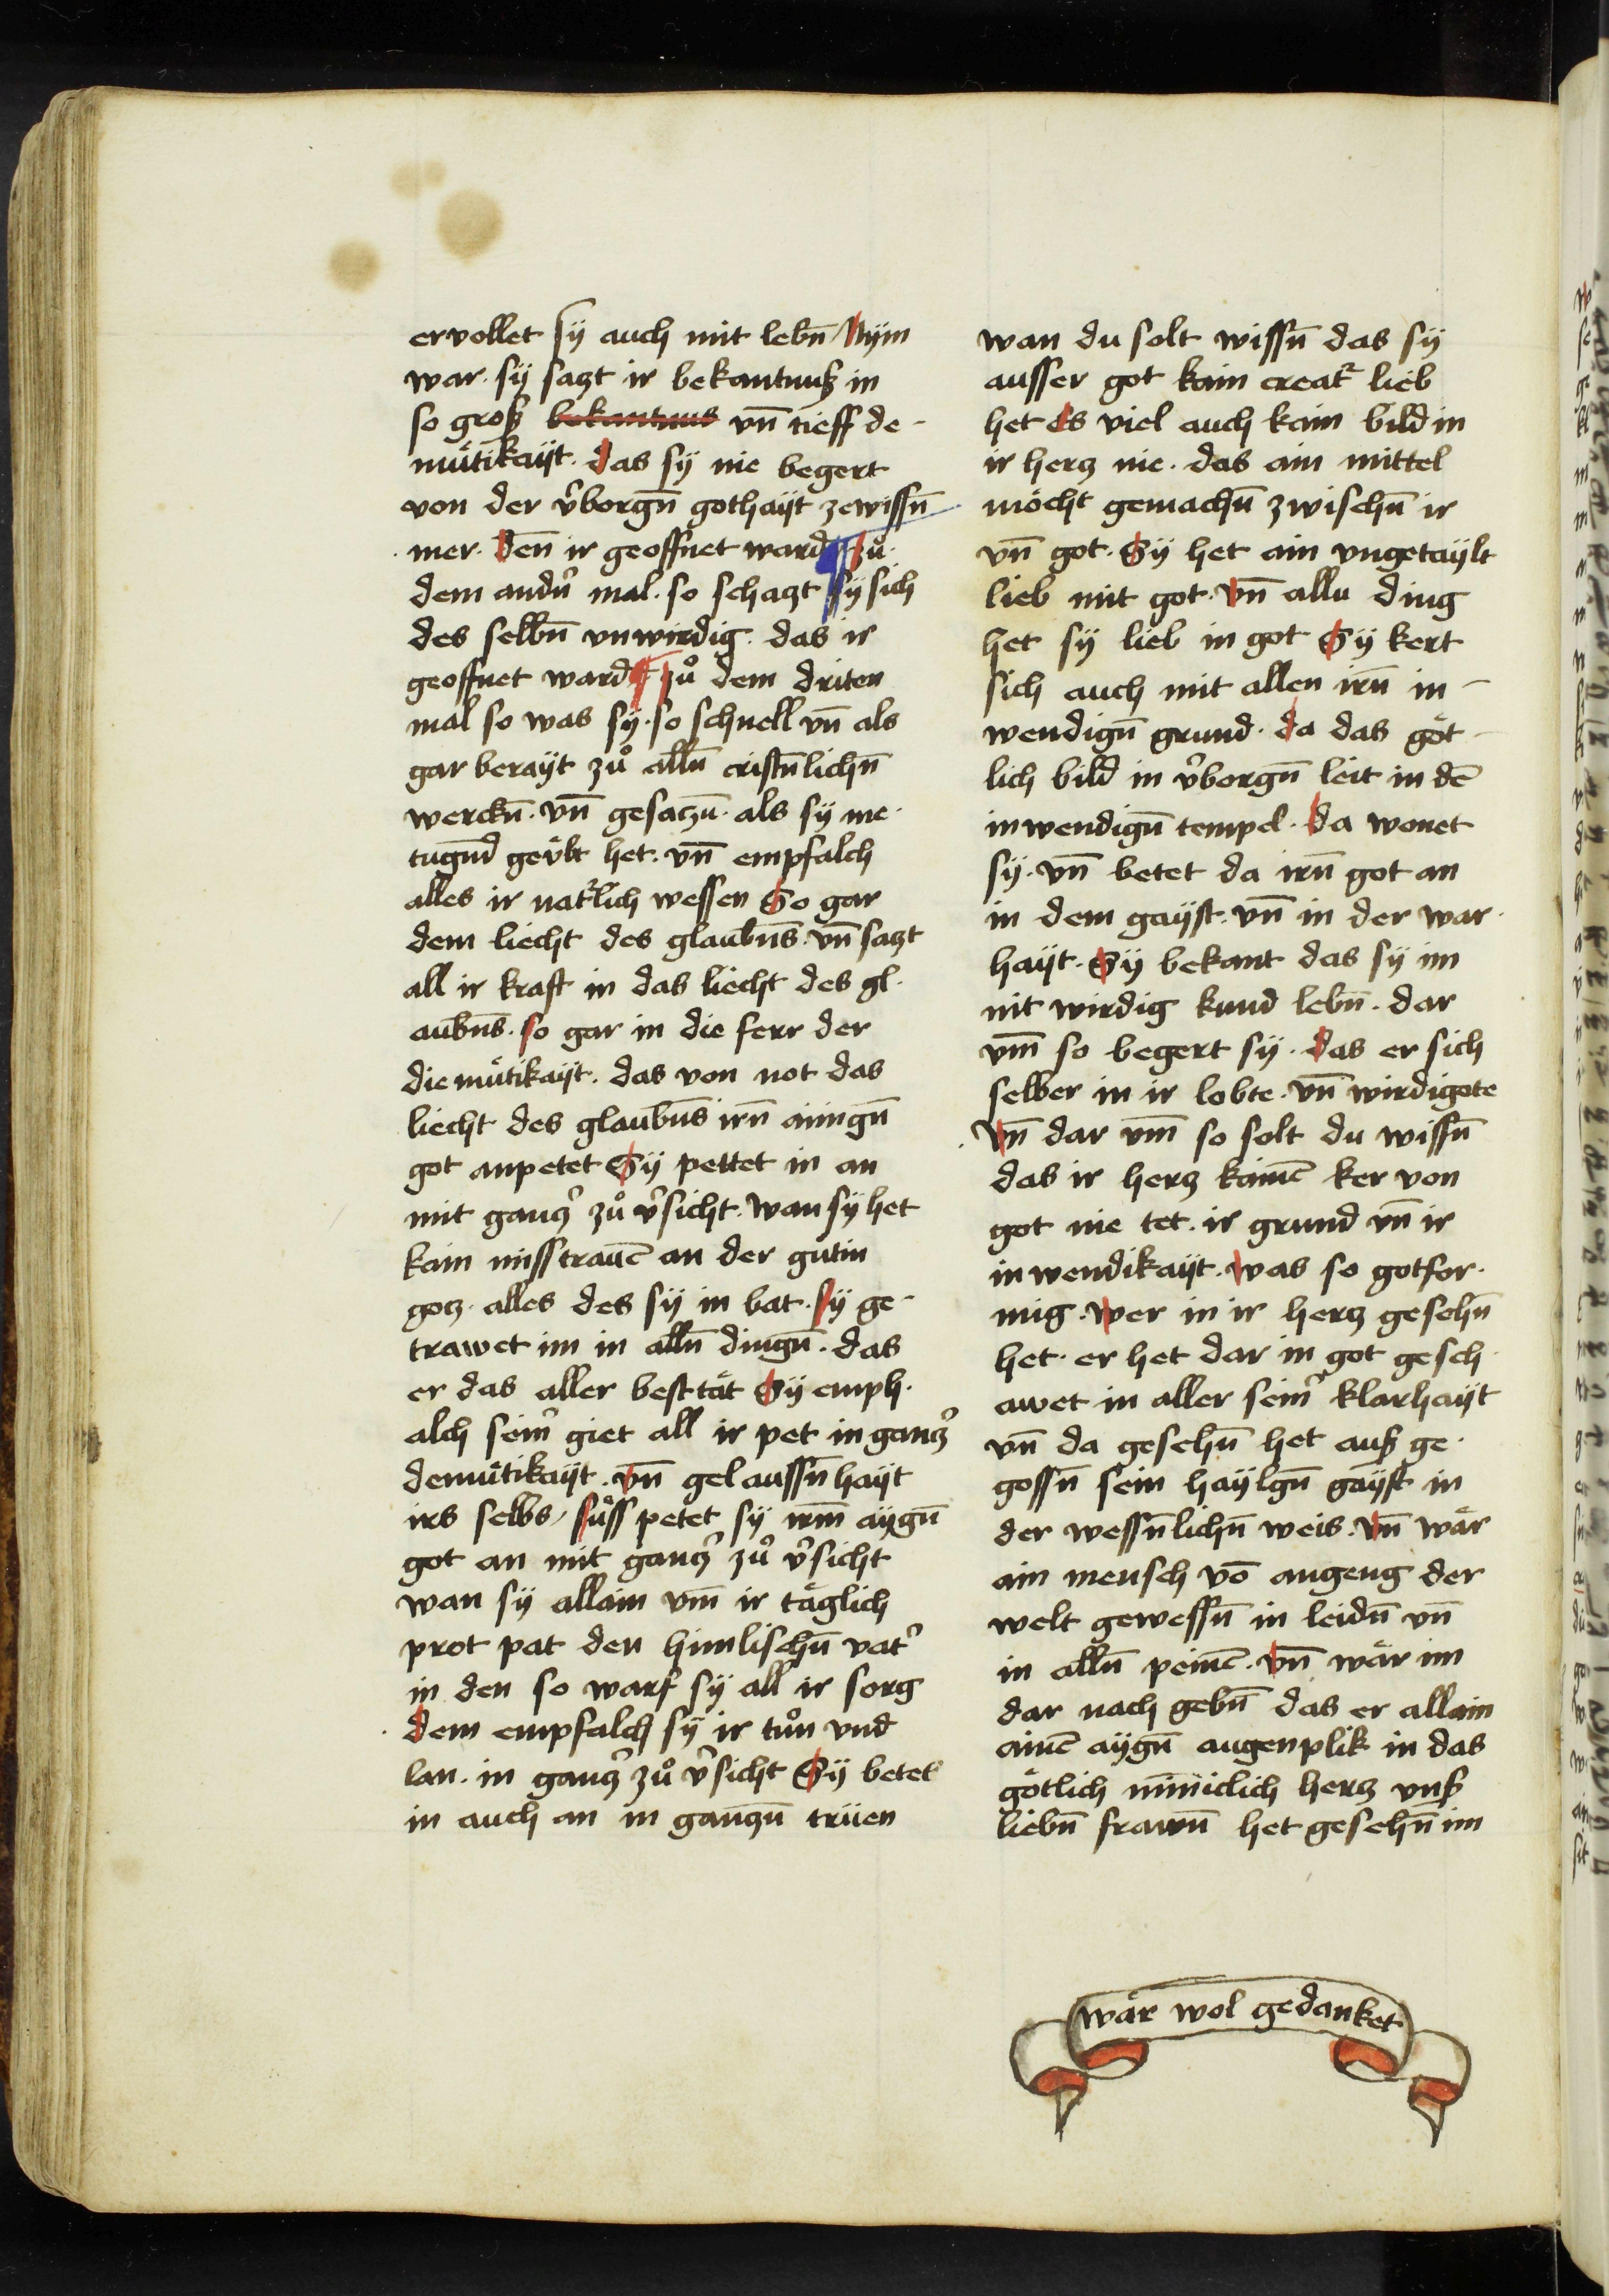 ervollet sÿ auch mit lebn̄ / Nÿm
war · sÿ saczt ir bekantnuß in
so groß bekantnus vn̄ tieff de-
mu̍tikaÿt · das sÿ nie begert
von der v̉borgn̄ gothaÿt zewissn̄
mer · Den̄ ir geoffnet ward ¶ zů
dem andn̉ mal · so schaczt sÿ sich
des selbn̄ vnwirdig · das ir
geoffnet ward ¶ zů dem driten
mal so was sÿ · so schnell vn̄ als
gar beraÿt zů alln̄ cristn̄lichn̄
werckn̄ · vn̄ gesaczn̄ · als sÿ nie ·
tugn̄d geu̍bt het · vn̄ empfalch
alles ir nat᷑lich wessen So gar
dem liecht des glaubn̄s · vn̄ saczt
all ir kraft in das liecht des gl·
aubn̄s · so gar in die ferr der
diemu̍tikaÿt · das von not das
liecht des glaubn̄s irn̄ ainign̄
got anpetet Sÿ pettet in an
mit gancz̉ zů v̉sicht · wan sÿ het
kain misstrauē an der gu̍tin
gocz · alles des sÿ in bat · sÿ ge-
trawet im in alln̄ dingn̄ · das
er das aller best tät Sÿ emph·
alch sein̉ giet all ir pet in gancz̉
demu̍tikaÿt · vn̄ gelaussn̄hayt
irs selbs / su̍ss petet sÿ irm̄ aÿgn̄
got an mit gancz̉ zů v̉sicht
wan sÿ allain vm̄ ir täglich
prot pat den himlischn̄ vat̉
in den so warf sÿ all ir sorg
dem empfalch sÿ ir tůn vnd
lan · in gancz̉ zů v̉sicht Sÿ betet
in auch an in ganczn̄ trüen
wan du solt wissn̄ das sÿ
ausser got kain creat᷑ lieb
het es viel auch kain bild in
ir hercz nie · das ain mittel
möcht gemachn̄ zwischn̄ ir
vn̄ got · Sÿ het ain vngetaÿlt
lieb mit got · vn̄ allu ding
het sÿ lieb in got Sÿ kert
sich auch mit allen irn̄ in-
wendign̄ grund · da das göt-
lich bild in v̉borgn̄ leit in dē
inwendign̄ tempel · da wonet
sÿ · vn̄ betet da irn̄ got an
in dem gaÿst · vn̄ in der war·
haÿt · Sÿ bekant das sÿ im
nit wirdig kund lebn̄ · dar
vm̄ so begert sÿ · das er sich
selber in ir lobte · vn̄ wirdigote
vn̄ dar vm̄ so solt du wissn̄
das ir hercz kainē ker von
got nie tet · ir grund vn̄ ir
inwendikaÿt · was so gotfor·
mig · wer in ir hercz gesehn̄
het · er het dar in got gesch·
awet in aller sein̉ klarhaÿt
vn̄ da gesehn̄ het auß ge·
gossn̄ sein haÿlgn̄ gaÿst in
der wessn̄lichn̄ weis · vn̄ wär
ain mensch vō angeng der
welt gewessn̄ in leidn̄ vn̄
in alln̄ peinē · vn̄ wär im
dar nach gebn̄ das er allain
ainē aÿgn̄ augenplik in das
götlich miniclich hercz vnß
liebn̄ frawn̄ het gesehn̄ im
wär wol gedanket